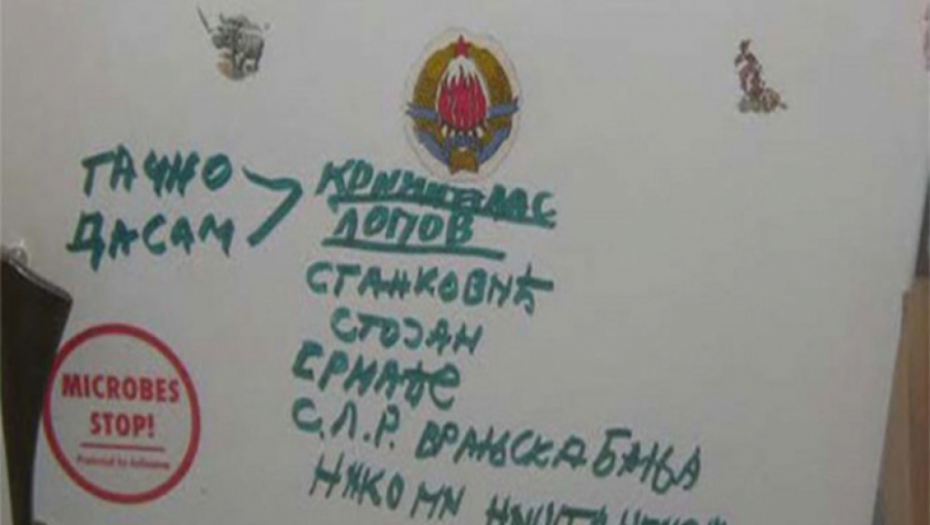 ТАЧНО
ДАСАМ
КРИМИНАЛАС
ЛОПОВ
СТАНКОВИЋ
СТОЈАН
СРНАЂЕ
С.Л.Р. ВРАЊСКА БАЊА
НИКО МИ
MICROBES
STOP!